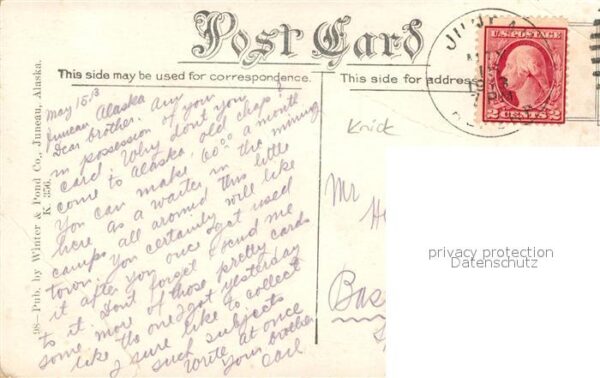 Post Card
This side may be used for correspondence.
This side for address
98—Pub. by Winter & Pond Co., Juneau, Alaska.
K. 356.
May 15-13
Juneau Alaska
Dear brother. Am
in possession of your
card. Why dont you
come to Alaska, old chap?
You can make 60 00 a month
here as a waiter in the mining
camps all around this little
town. You certainly will like
it after you once get used
to it. Dont forget send me
some more of those pretty cards
like the one I got yesterday
I sure like to collect
such subjects
Write at once
your brother
Carl
Knick
Mr
H
Bas
U.S. POSTAGE
2 CENTS 2
privacy protection
Datenschutz